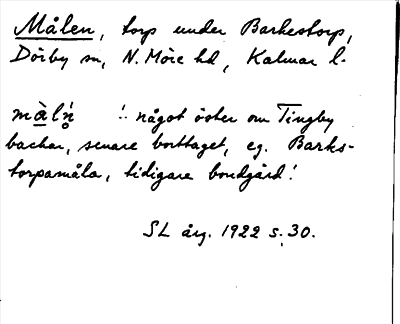 Målen, torp under Barkestorp,
Dörby sn, N. Möre hd, Kalmar l.
må̀ln̥ !: något öster om Tingby
backar, senare borttaget, eg. Barks-
torpamåla, tidigare bondgård!
SL årg. 1922 s. 30.